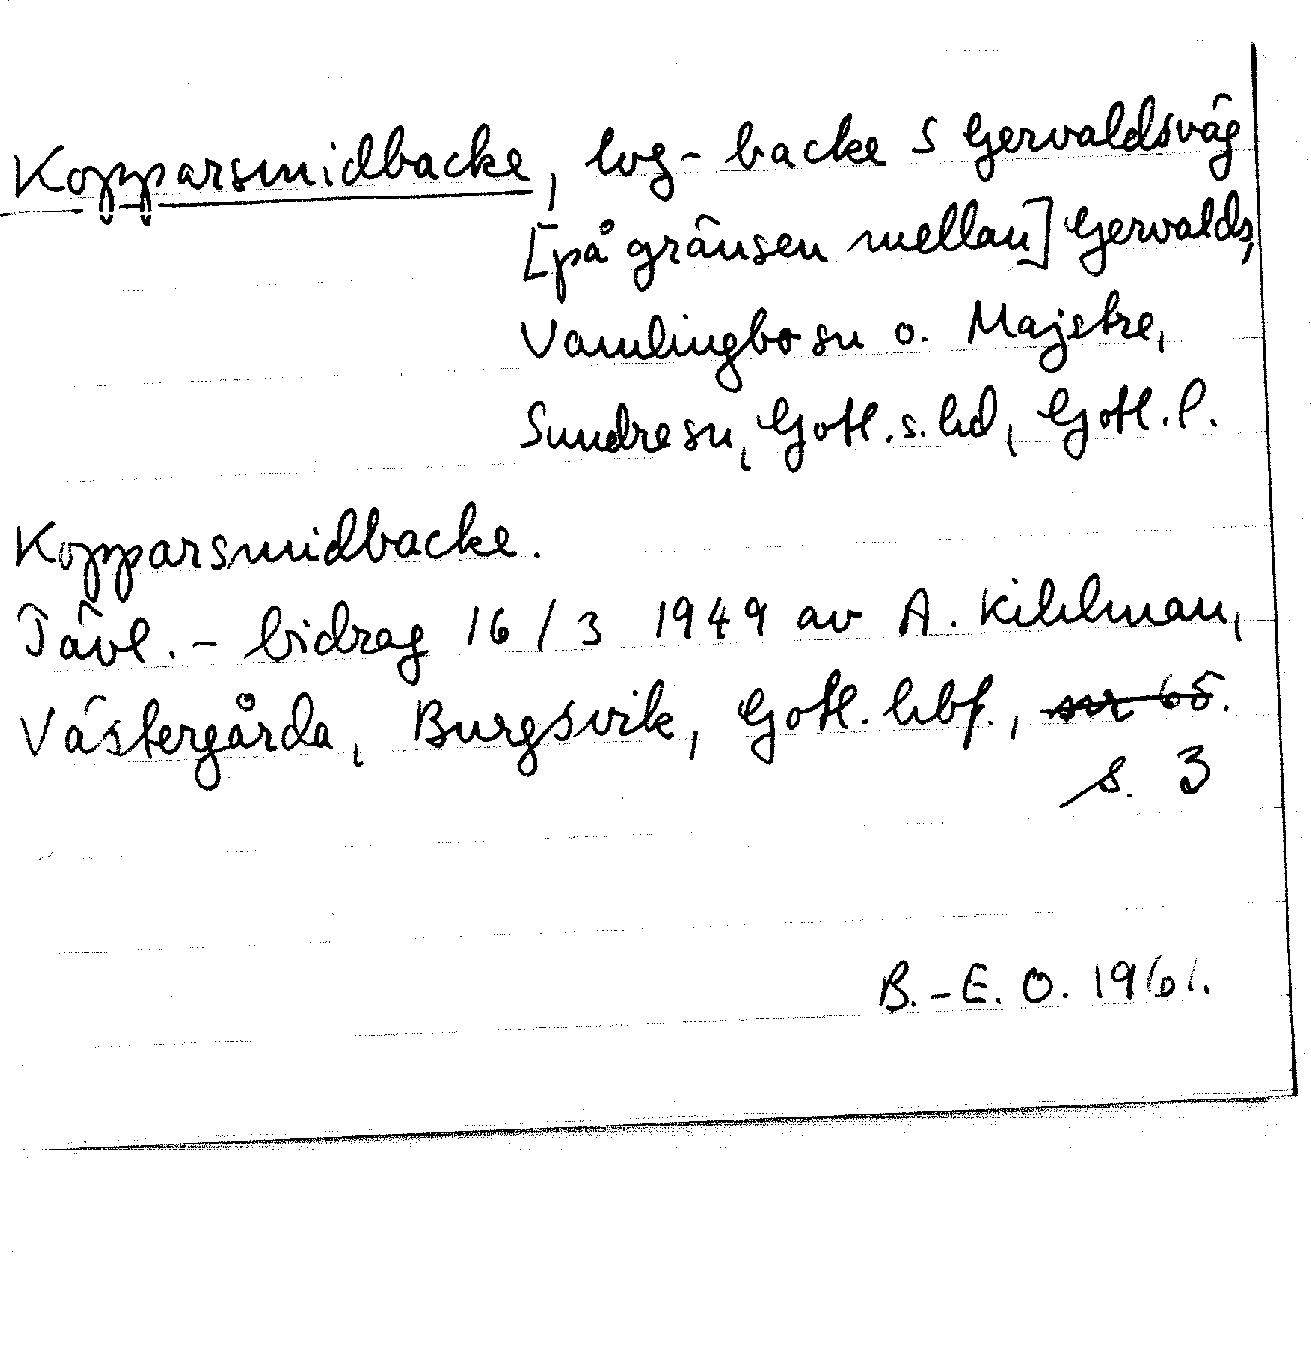 Kopparsmidbacke, lvg-backe S Gervaldsväg
[på gränsen mellan] Gervalds,
Vamlingbo sn o. Majstre,
Sundre sn, Gotl. s. hd, Gotl. l.
Kopparsmidbacke.
Tävl.-bidrag 16/3 1949 av A. Kihlman,
Västergårda, Burgsvik, Gotl. hbf., nr 65.
s. 3
B.-E. O. 1961.